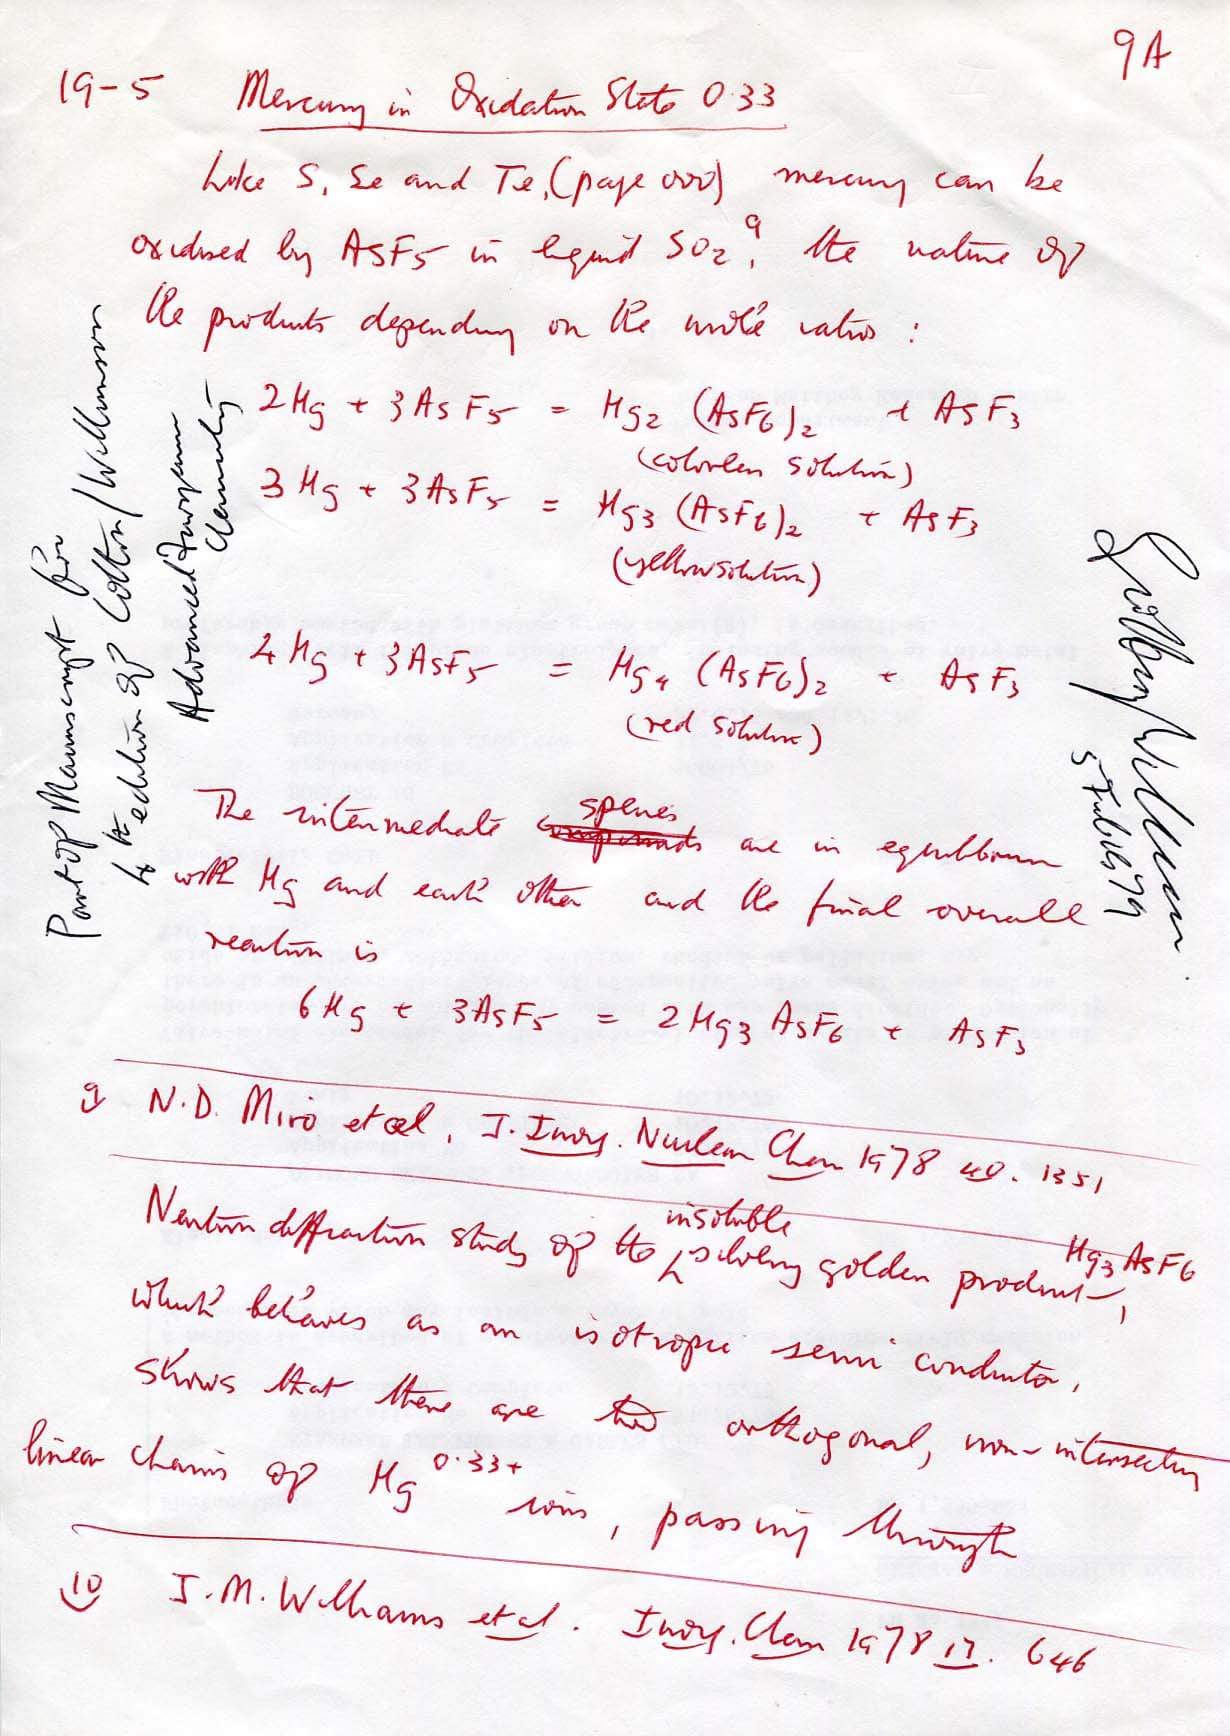 9A
19-5 Mercury in Oxidation State 0.33
Like S, Se and Te, (page 000) mercury can be
oxidised by AsF5 in liquid SO2,9 the nature of
the products depending on the mole ratios :
2Hg + 3AsF5 = Hg2 (AsF6)2 + AsF3
(colorless solution)
3Hg + 3AsF5 = Hg3 (AsF6)2 + AsF3
(yellow solution)
4Hg + 3AsF5 = Hg4 (AsF6)2 + AsF3
(red solution)
species
The intermediate compounds are in equilibrium
with Hg and each other and the final overall
reaction is
6Hg + 3AsF5 = 2Hg3 AsF6 + AsF3
9 N.D. Miro et al, J. Inorg. Nuclear Chem 1978 40. 1351
insoluble
Hg3 AsF6
Neutron diffraction study of the silvery golden product,
which behaves as an isotropic semi conductor,
shows that there are two orthogonal, non-intersecting
linear chains of Hg 0.33+ ions, passing through
10 J.M. Williams et al. Inorg. Chem 1978 17. 646
Part of Manuscript for
4th edition of Cotton/Wilkinson
Advanced Inorganic
Chemistry
Geoffrey Wilkinson.
5 July 1979